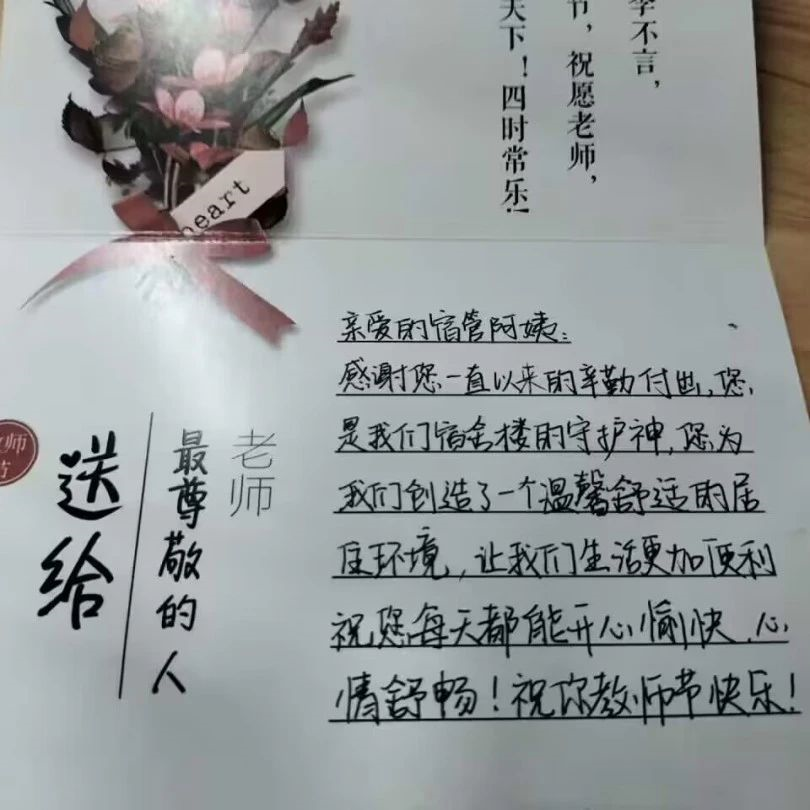 李不言，
节，祝愿老师，
天下！四时常乐！
heart
亲爱的宿管阿姨：
感谢您一直以来的辛勤付出，您，
是我们宿舍楼的守护神，您为
我们创造了一个温馨舒适的居
住环境，让我们生活更加便利
祝您每天都能开心愉快、心
情舒畅！祝你教师节快乐！
老师
最尊敬的人
送给
师
节